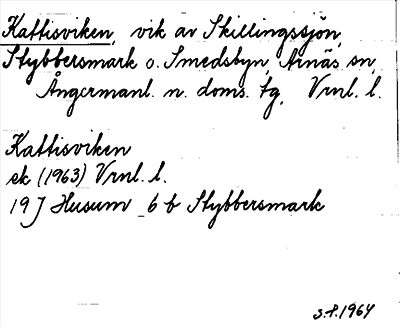 Kattisviken, vik av Skillingssjön,
Stybbersmark o. Smedsbyn, Arnäs sn,
Ångermanl. n. doms. tg, Vrnl. l.
Kattisviken
ek (1963) Vrnl. l.
19 J Husum 6 b Stybbersmark
1964